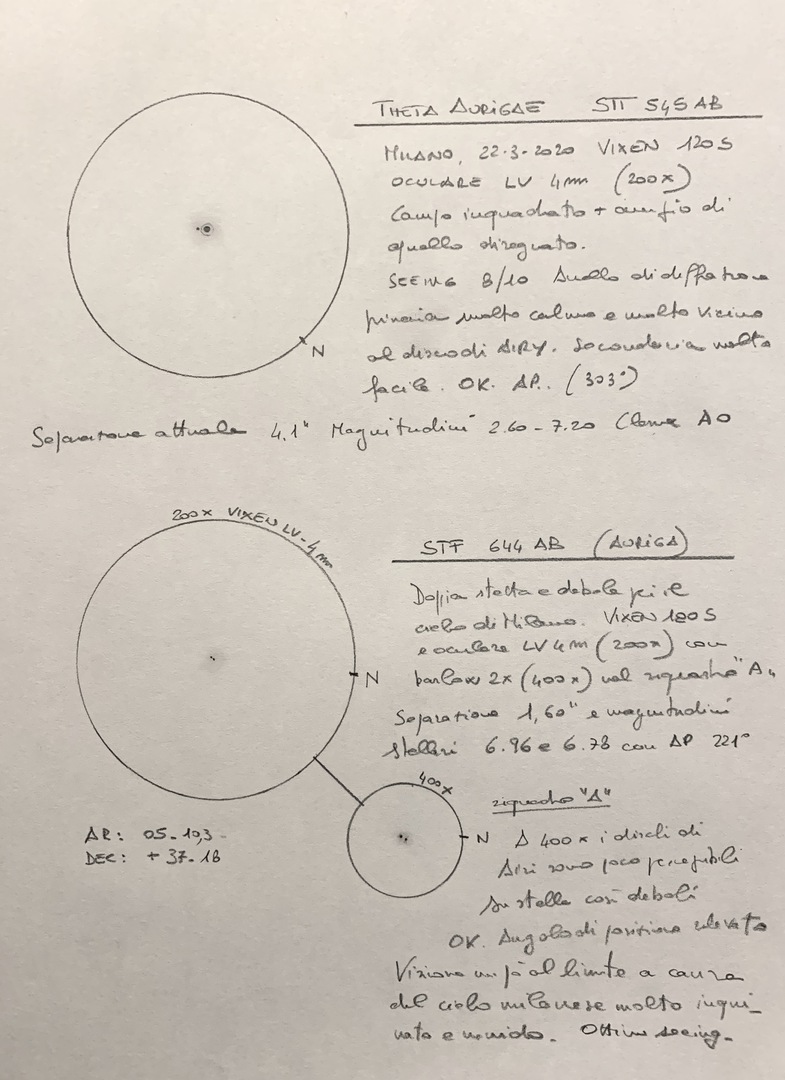 THETA AURIGAE STT 545 AB
MILANO, 22-3-2020 VIXEN 120S
OCULARE LV 4mm (200x)
Campo inquadrato + ampio di
quello disegnato.
SEEING 8/10 Anello di diffrazione
primaria molto calmo e molto vicino
al disco di AIRY. Secondaria molto
facile. OK. AP.. (303°)
N
Separazione attuale 4.1" Magnitudini 2.60 - 7.20 Classe A0
200x VIXEN LV-4mm
STF 644 AB (AURIGA)
Doppia stretta e debole per il
cielo di Milano. VIXEN 120S
e oculare LV 4m (200x) con
barlow 2x (400x) nel riquadro "A"
N
Separazione 1,60" e magnitudini
stellari 6.96 e 6.78 con AP 221°
400x
riquadro "A"
N
AR: 05-10,3-
DEC: +37-18
A 400x i dischi di
Airi sono poco percepibili
su stelle così deboli
OK. Angolo di posizione rilevato
Visione un pò al limite a causa
del cielo milanese molto inqui_
nato e umido. Ottimo seeing.